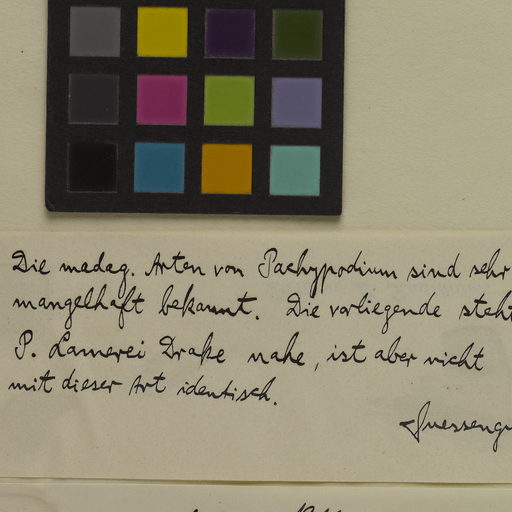 Die madag. Arten von Pachypodium sind sehr
mangelhaft bekannt. Die vorliegende steht
P. Lamerei Drake nahe, ist aber nicht
mit dieser Art identisch.
Suessengu